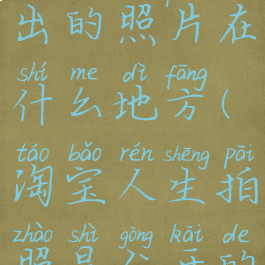 出的照片在
shí me dì fāng
什么地方(
táo bǎo rén shēng pāi
淘宝人生拍
zhào shì gōng kāi de
照是公开的